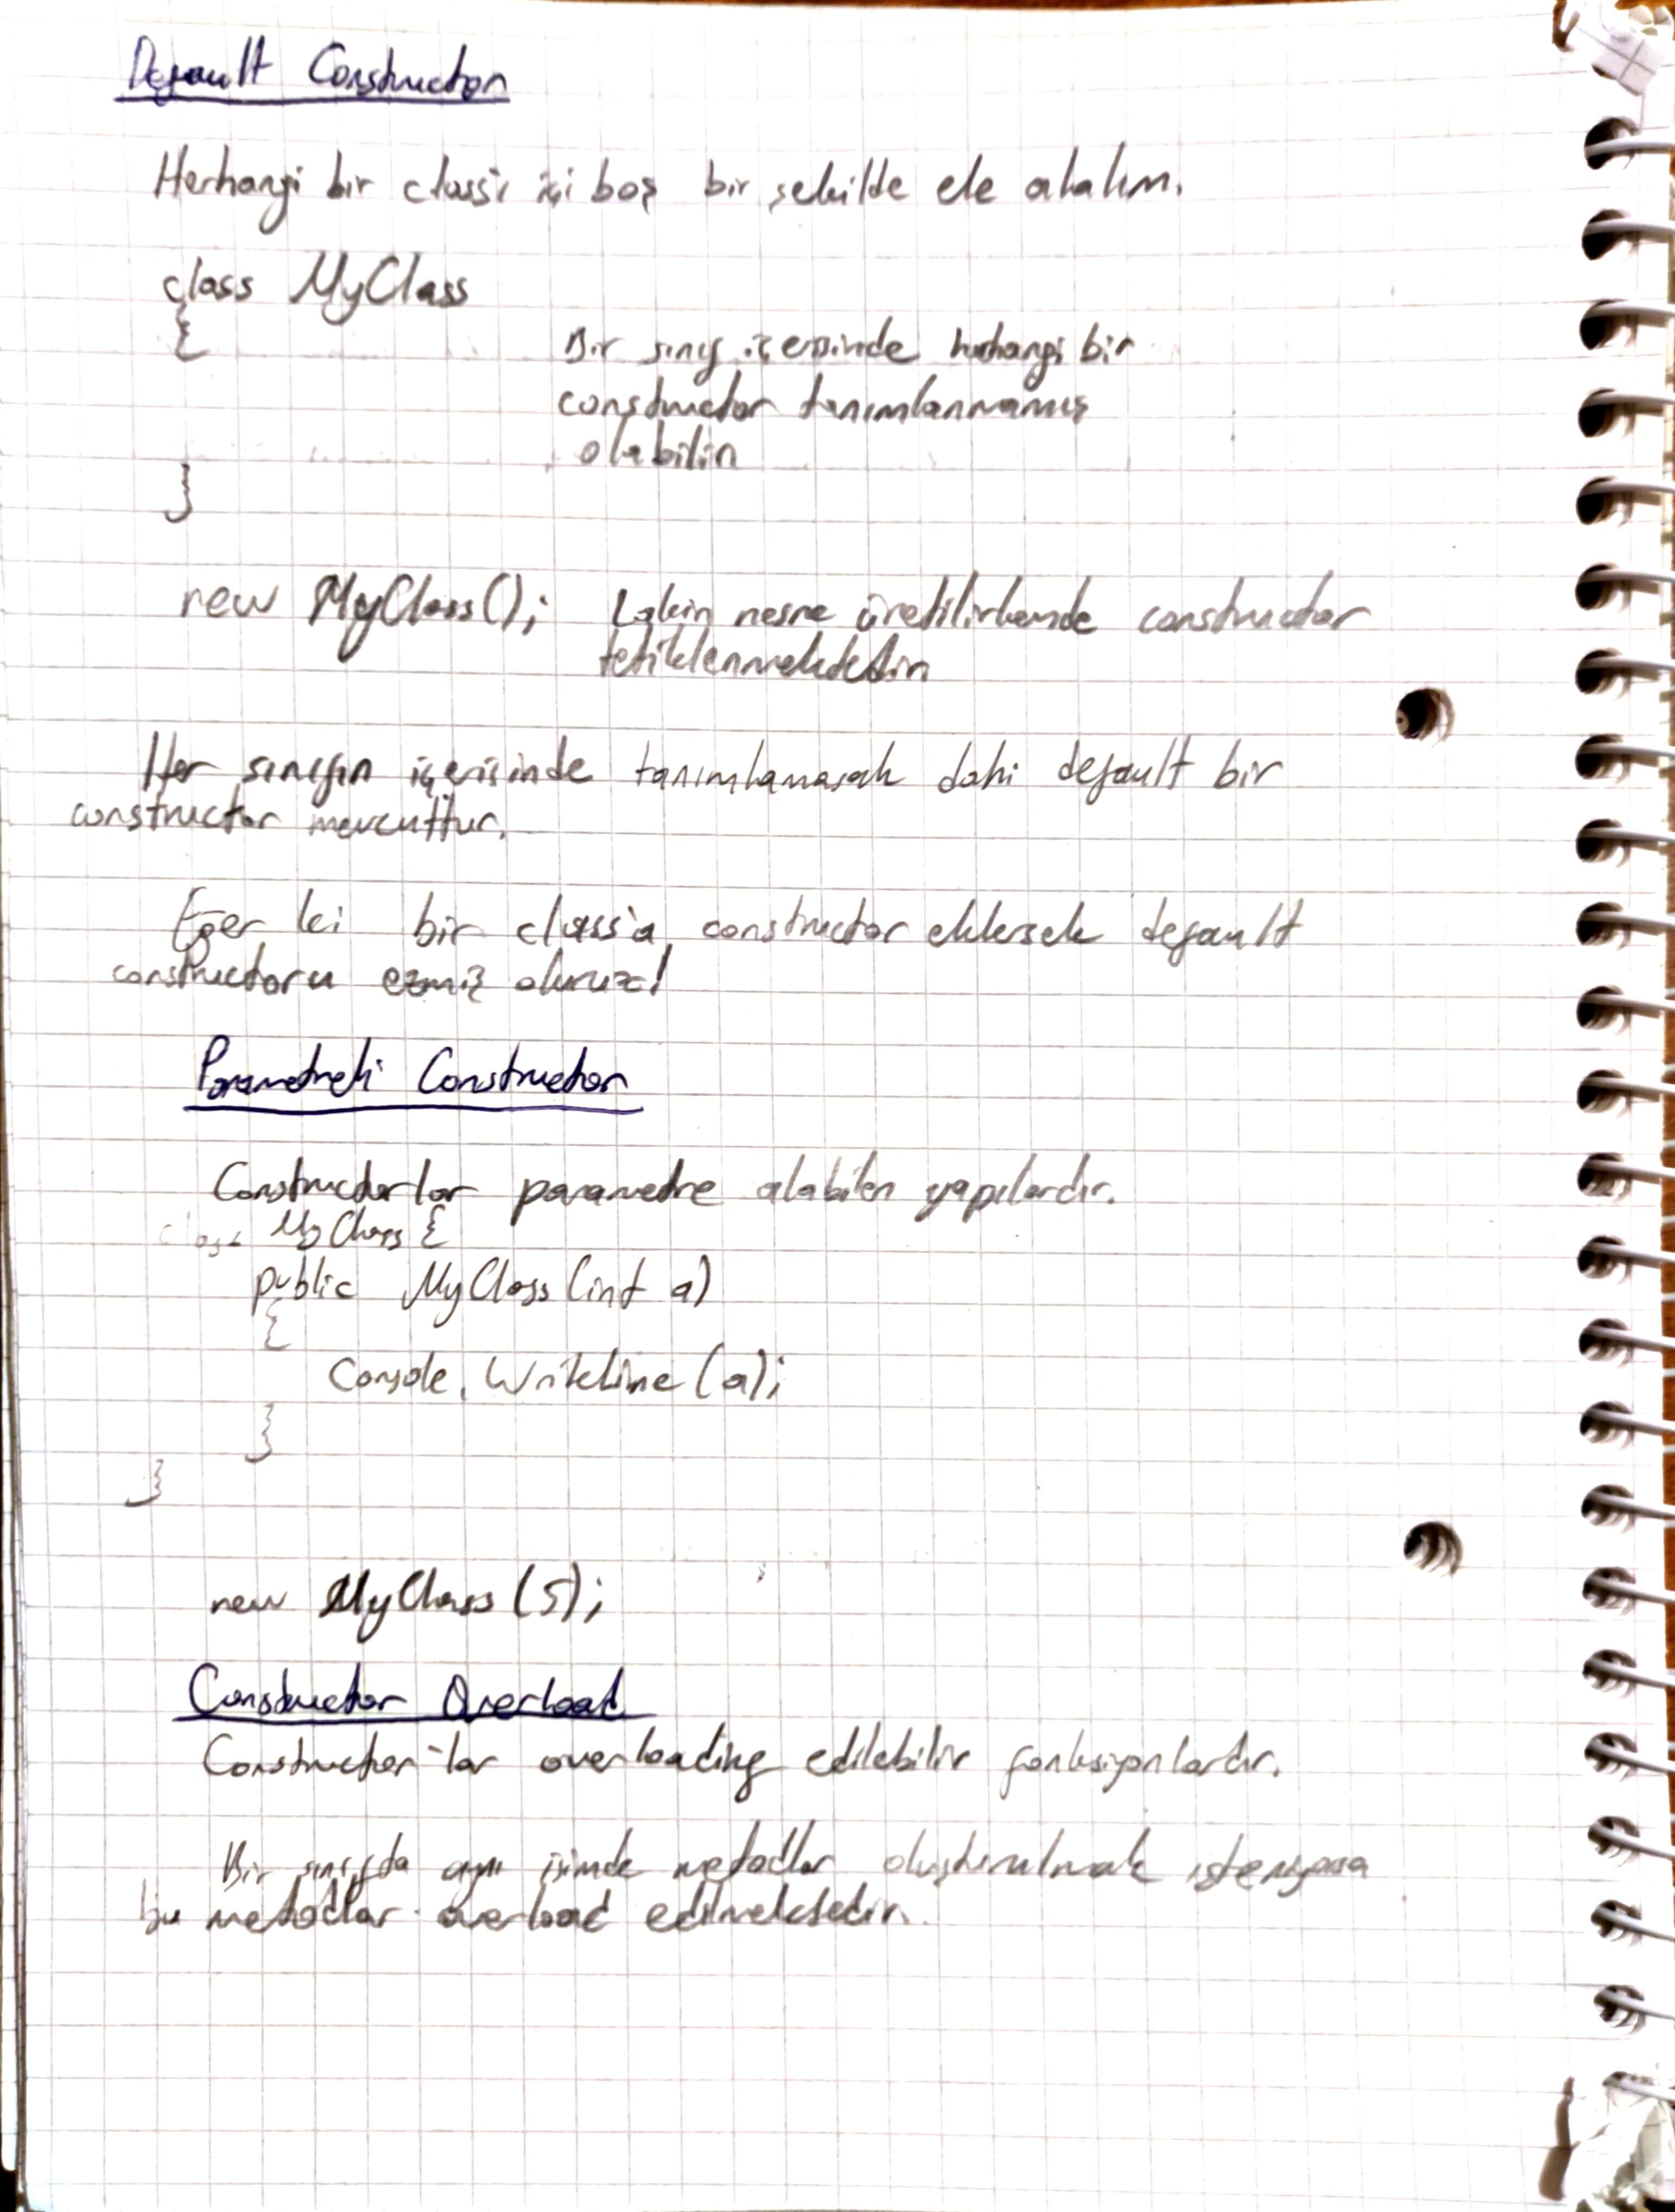 Default Constructor
Herhangi bir class'ı içi boş bir şekilde ele alalım.
class MyClass
{
Bir sınıf içerisinde herhangi bir
constructor tanımlanmamış
olabilir
}
new MyClass(); Lakin nesne üretilirkende constructor
tetiklenmektedir
Her sınıfın içerisinde tanımlamasak dahi default bir
constructor mevcuttur.
Eğer ki bir class'a constructor eklersek default
constructoru ezmiş oluruz!
Parametreli Constructor
Constructorlar parametre alabilen yapılardır.
class MyClass {
public MyClass (int a)
{
Console.WriteLine (a);
}
}
new MyClass (5);
Constructor Overload
Constructor'lar overloading edilebilir fonksiyonlardır.
Bir sınıfta aynı isimde metodlar oluşturulmak isteniyorsa
bu metodlar overload edilmektedir.